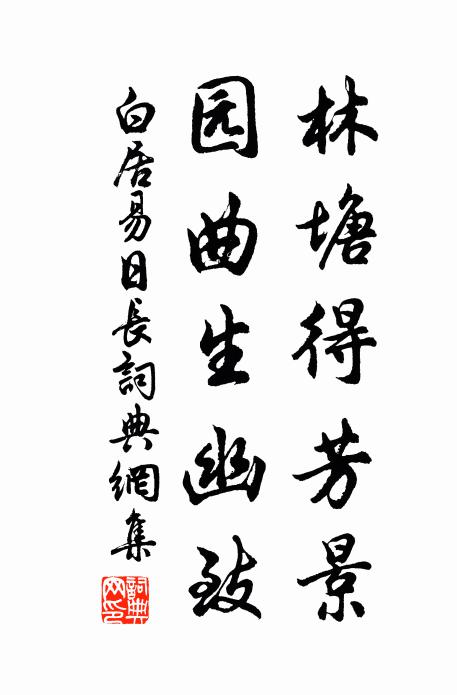 林塘得芳景
园曲生幽致
白居易日長詞典網集
詞典网印